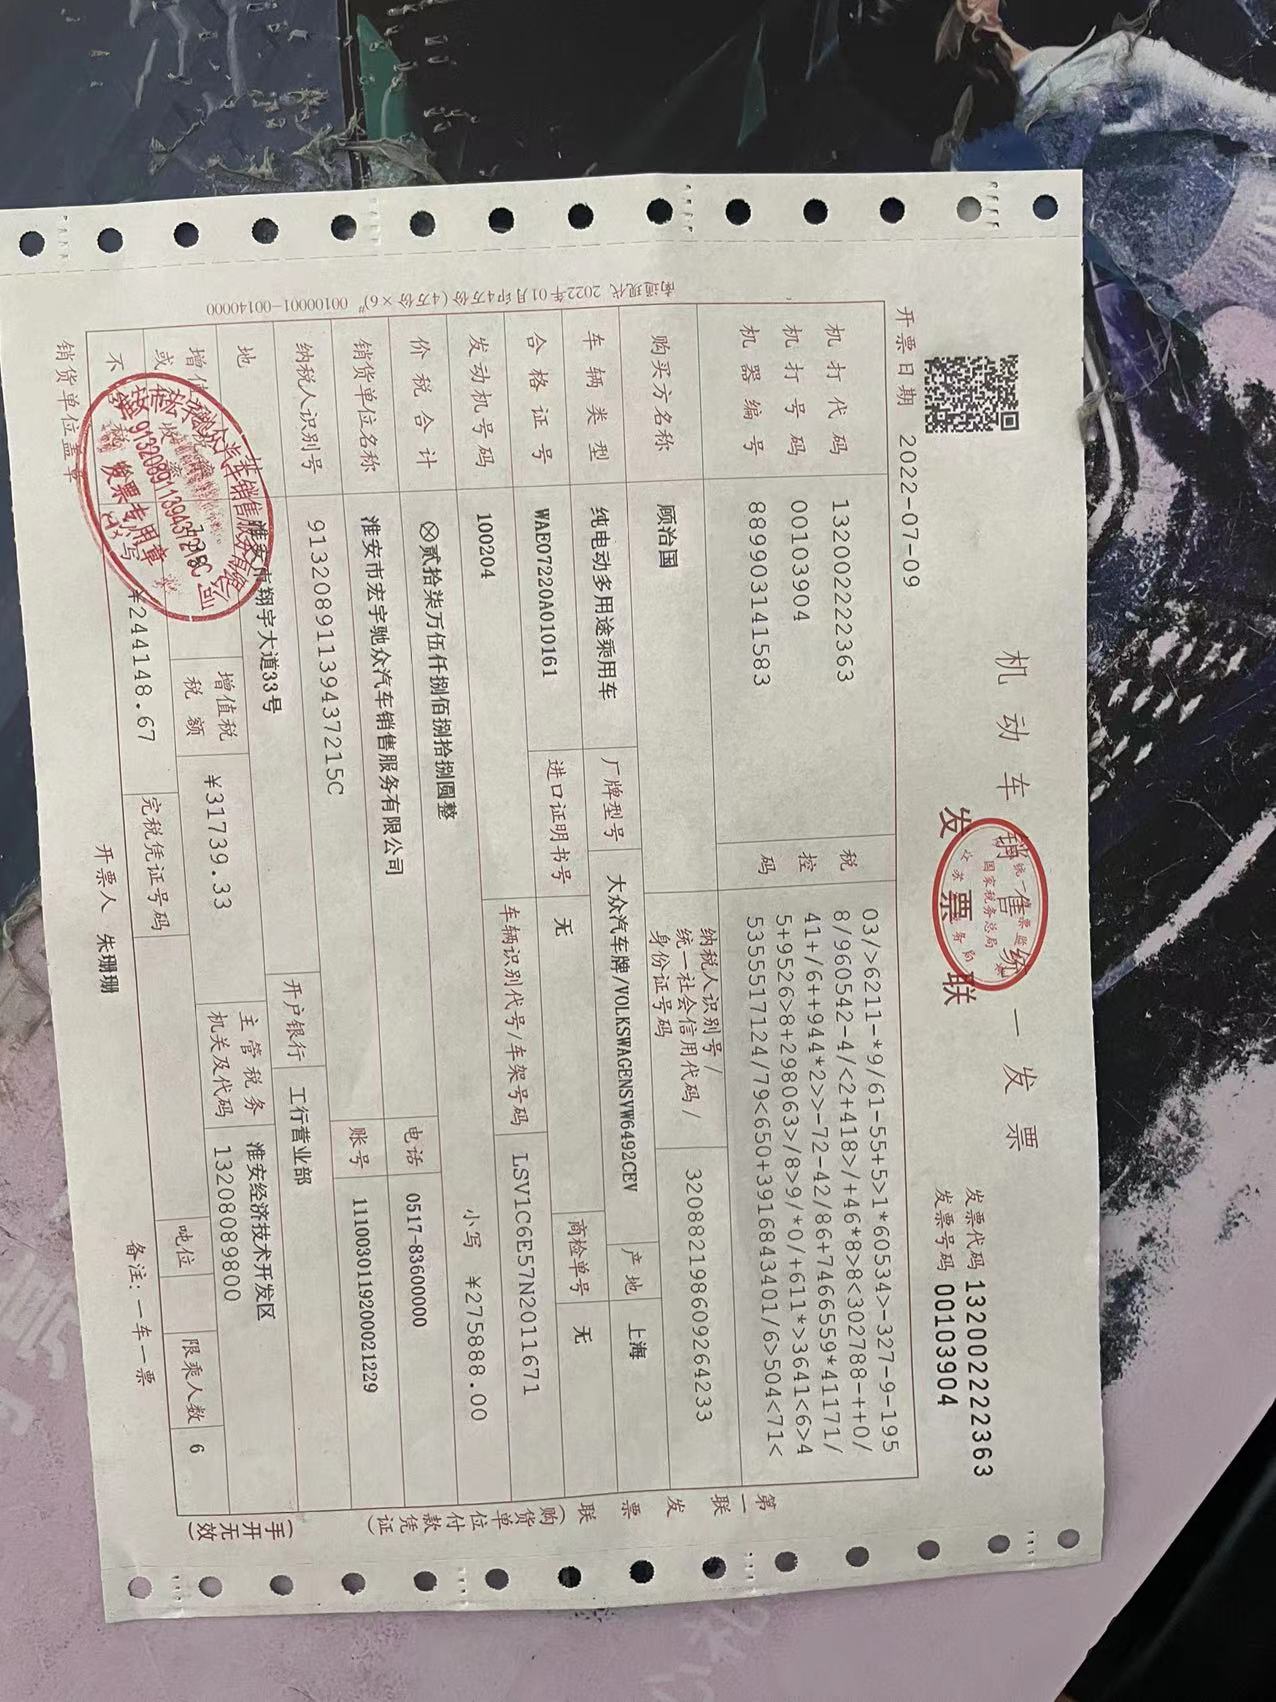 机动车销售统一发票
发票联
发票代码 132002222363
发票号码 00103904
开票日期 2022-07-09
机打代码 132002222363
机打号码 00103904
机器编号 889903141583
税控码
03/>6211-*9/61-55+5>1*60534>-327-9-195
8/960542-4/<2+418>/+46*8>8<302788-++0/
41+/6++944*2>>-72-42/86+7466559*41171/
5+9526>8+298063>/8>9/*0/+611*>3641<6>4
5355517124/79<650+3916843401/6>504<71<
购买方名称 顾治国 纳税人识别号/统一社会信用代码/身份证号码 320882198609264233
车辆类型 纯电动多用途乘用车 厂牌型号 大众汽车牌/VOLKSWAGENSVW6492CEV 产地 上海
合格证号 WAE07220A010161 进口证明书号 无 商检单号 无
发动机号码 100204 车辆识别代号/车架号码 LSV1C6E57N2011671
价税合计 ⊗贰拾柒万伍仟捌佰捌拾捌圆整 小写 ¥275888.00
销货单位名称 淮安市宏宇驰众汽车销售服务有限公司 电话 0517-83600000
纳税人识别号 91320891139437215C 账号 1110030119200021229
地 淮安市翔宇大道33号 开户银行 工行营业部
增值税税额 ¥31739.33 主管税务机关及代码 淮安经济技术开发区 13208089800
不 ¥244148.67 完税凭证号码 吨位 限乘人数 6
销货单位盖章 开票人 朱珊珊 备注：一车一票
第一联 发票联（购货单位付款凭证）
（手开无效）
南通现代 2022年01月印4万份(4万份×6)# 00100001-00140000
国家税务总局
91320891139437215C
发票专用章